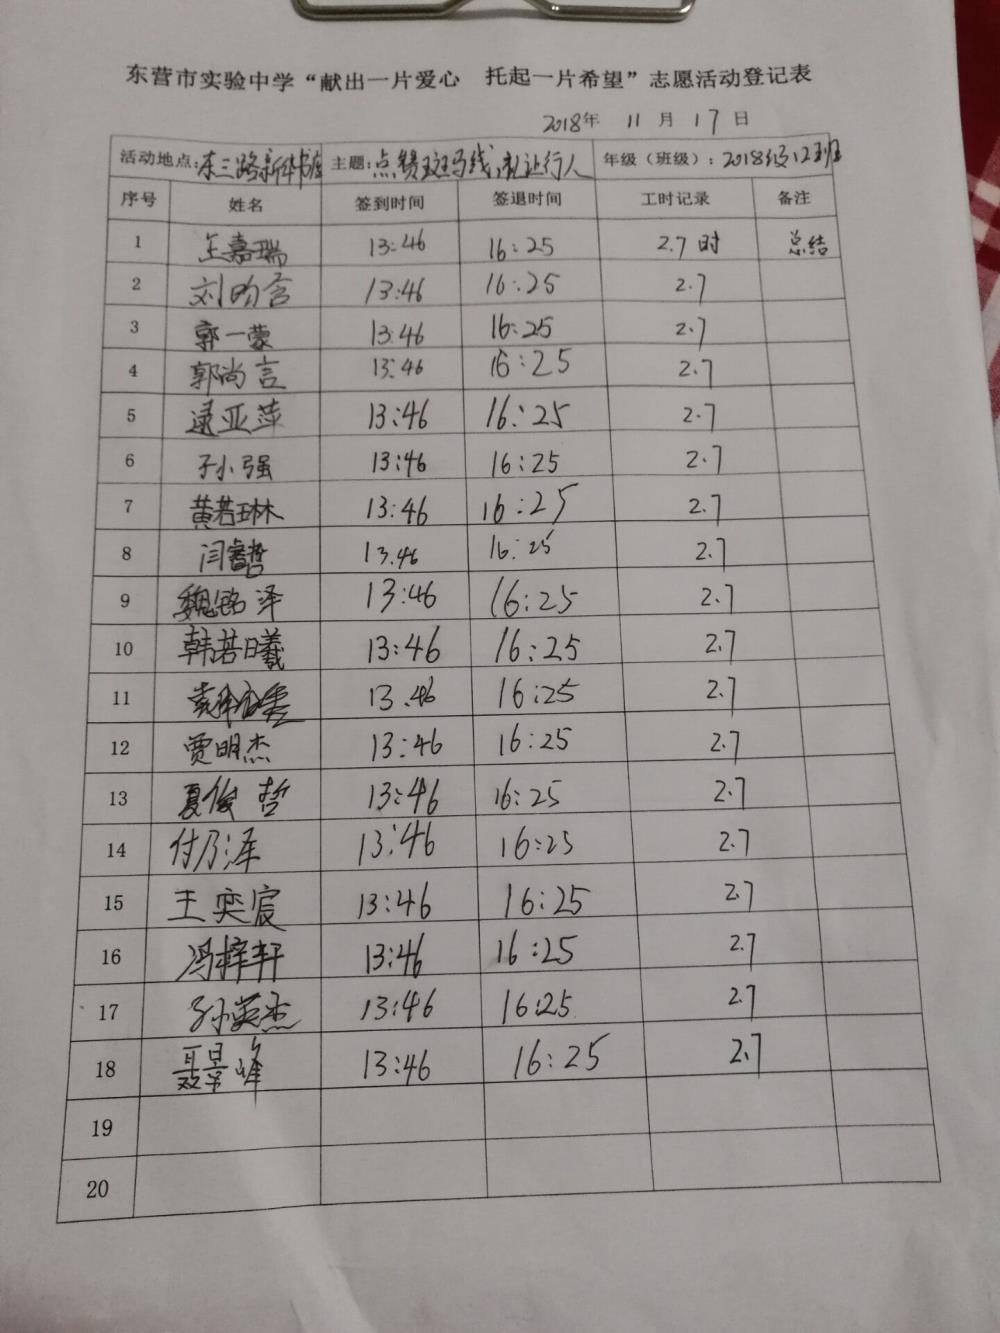 东营市实验中学“献出一片爱心 托起一片希望”志愿活动登记表
2018年 11 月 17 日
活动地点:东三路新华书店 主题:点赞斑马线,礼让行人 年级(班级):2018级12班
序号 姓名 签到时间 签退时间 工时记录 备注
1 王嘉瑞 13:46 16:25 2.7时 总结
2 刘昀含 13:46 16:25 2.7
3 郭一蒙 13:46 16:25 2.7
4 郭尚言 13:46 16:25 2.7
5 逯亚萍 13:46 16:25 2.7
6 孙小强 13:46 16:25 2.7
7 黄若琳 13:46 16:25 2.7
8 闫睿哲 13.46 16:25 2.7
9 魏铭泽 13:46 16:25 2.7
10 韩若曦 13:46 16:25 2.7
11 13.46 16:25 2.7
12 贾明杰 13:46 16:25 2.7
13 夏俊哲 13:46 16:25 2.7
14 付乃泽 13:46 16:25 2.7
15 王奕宸 13:46 16:25 2.7
16 冯梓轩 13:46 16:25 2.7
17 孙英杰 13:46 16:25 2.7
18 聂景峰 13:46 16:25 2.7
19
20